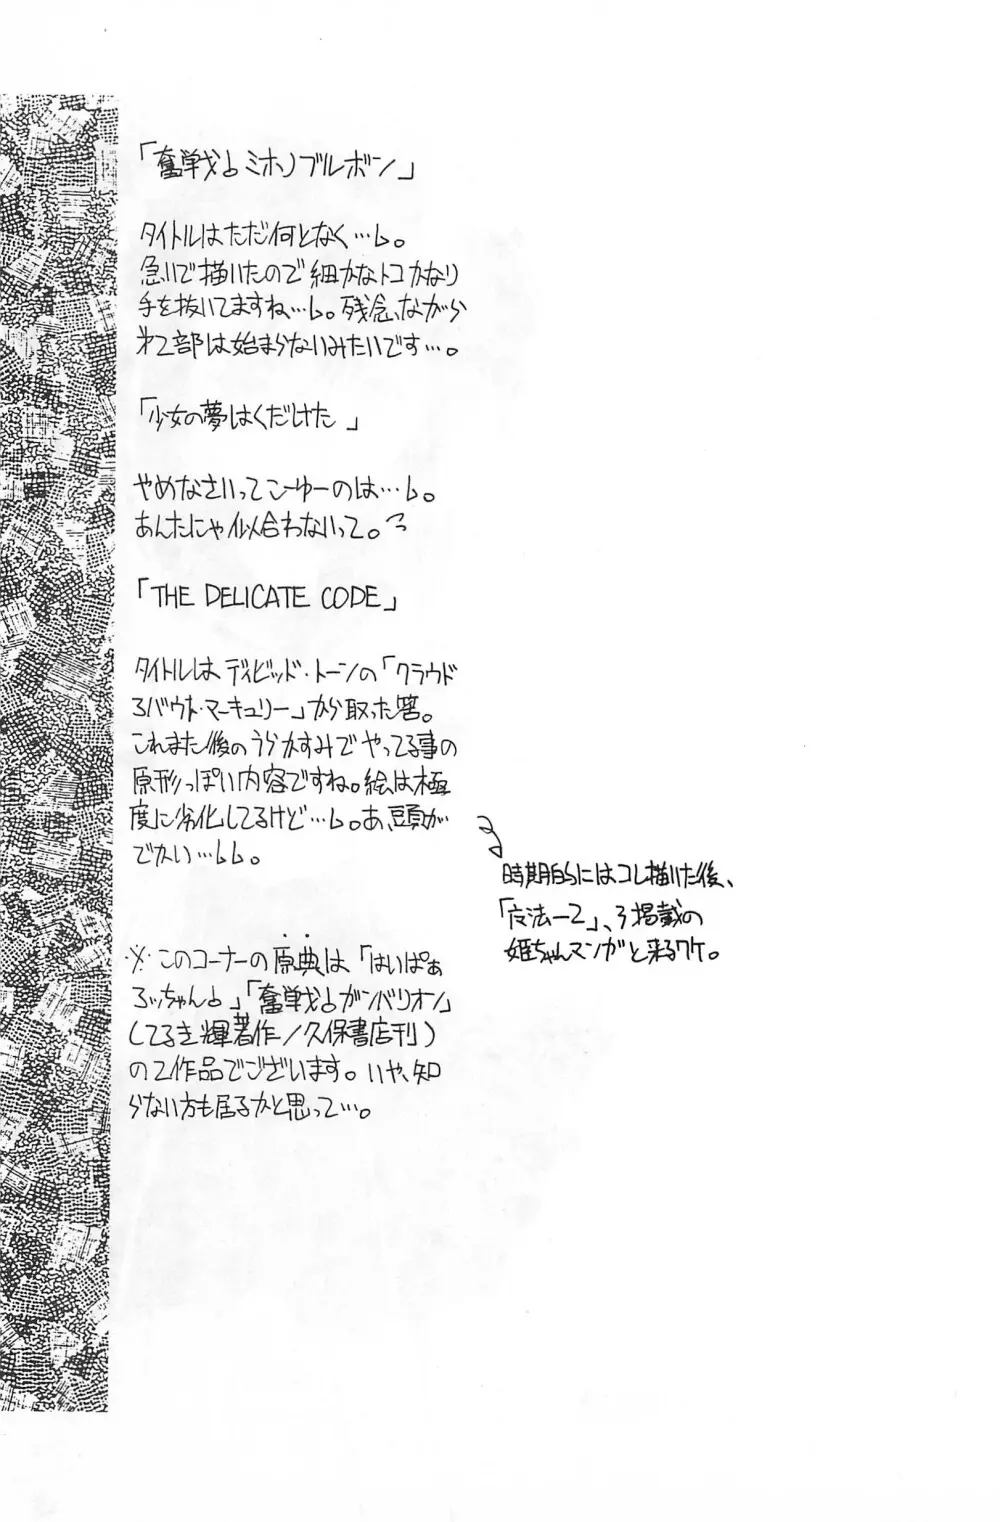 「奮戦♭ミホノブルボン」
タイトルはただ何となく…♭。
急いで描いたので細かなトコかなり
手を抜いてますね…♭。残念ながら
第2部は始まらないみたいです…。
「少女の夢はくだけた」
やめなさいってこーゆーのは…♭。
あんたにゃ似合わないって。
「THE DELICATE CODE」
タイトルはディビッド・トーンの「クラウド
アバウト・マーキュリー」から取った筈。
これまた後のうらかすみでやってる事の
原形っぽい内容ですね。絵は極
度に劣化してるけど…♭。あ、頭が
でかい…♭♭。
時期的にはコレ描いた後、
「-2」、3掲載の
姫ちゃんマンガと来るワケ。
※このコーナーの原典は「はいぱぁ
ろっちゃん♭」「奮戦♭ガンバリオン」
(てるき輝著作/久保書店刊)
の2作品でございます。いや、知
らない方も居るかと思って…。